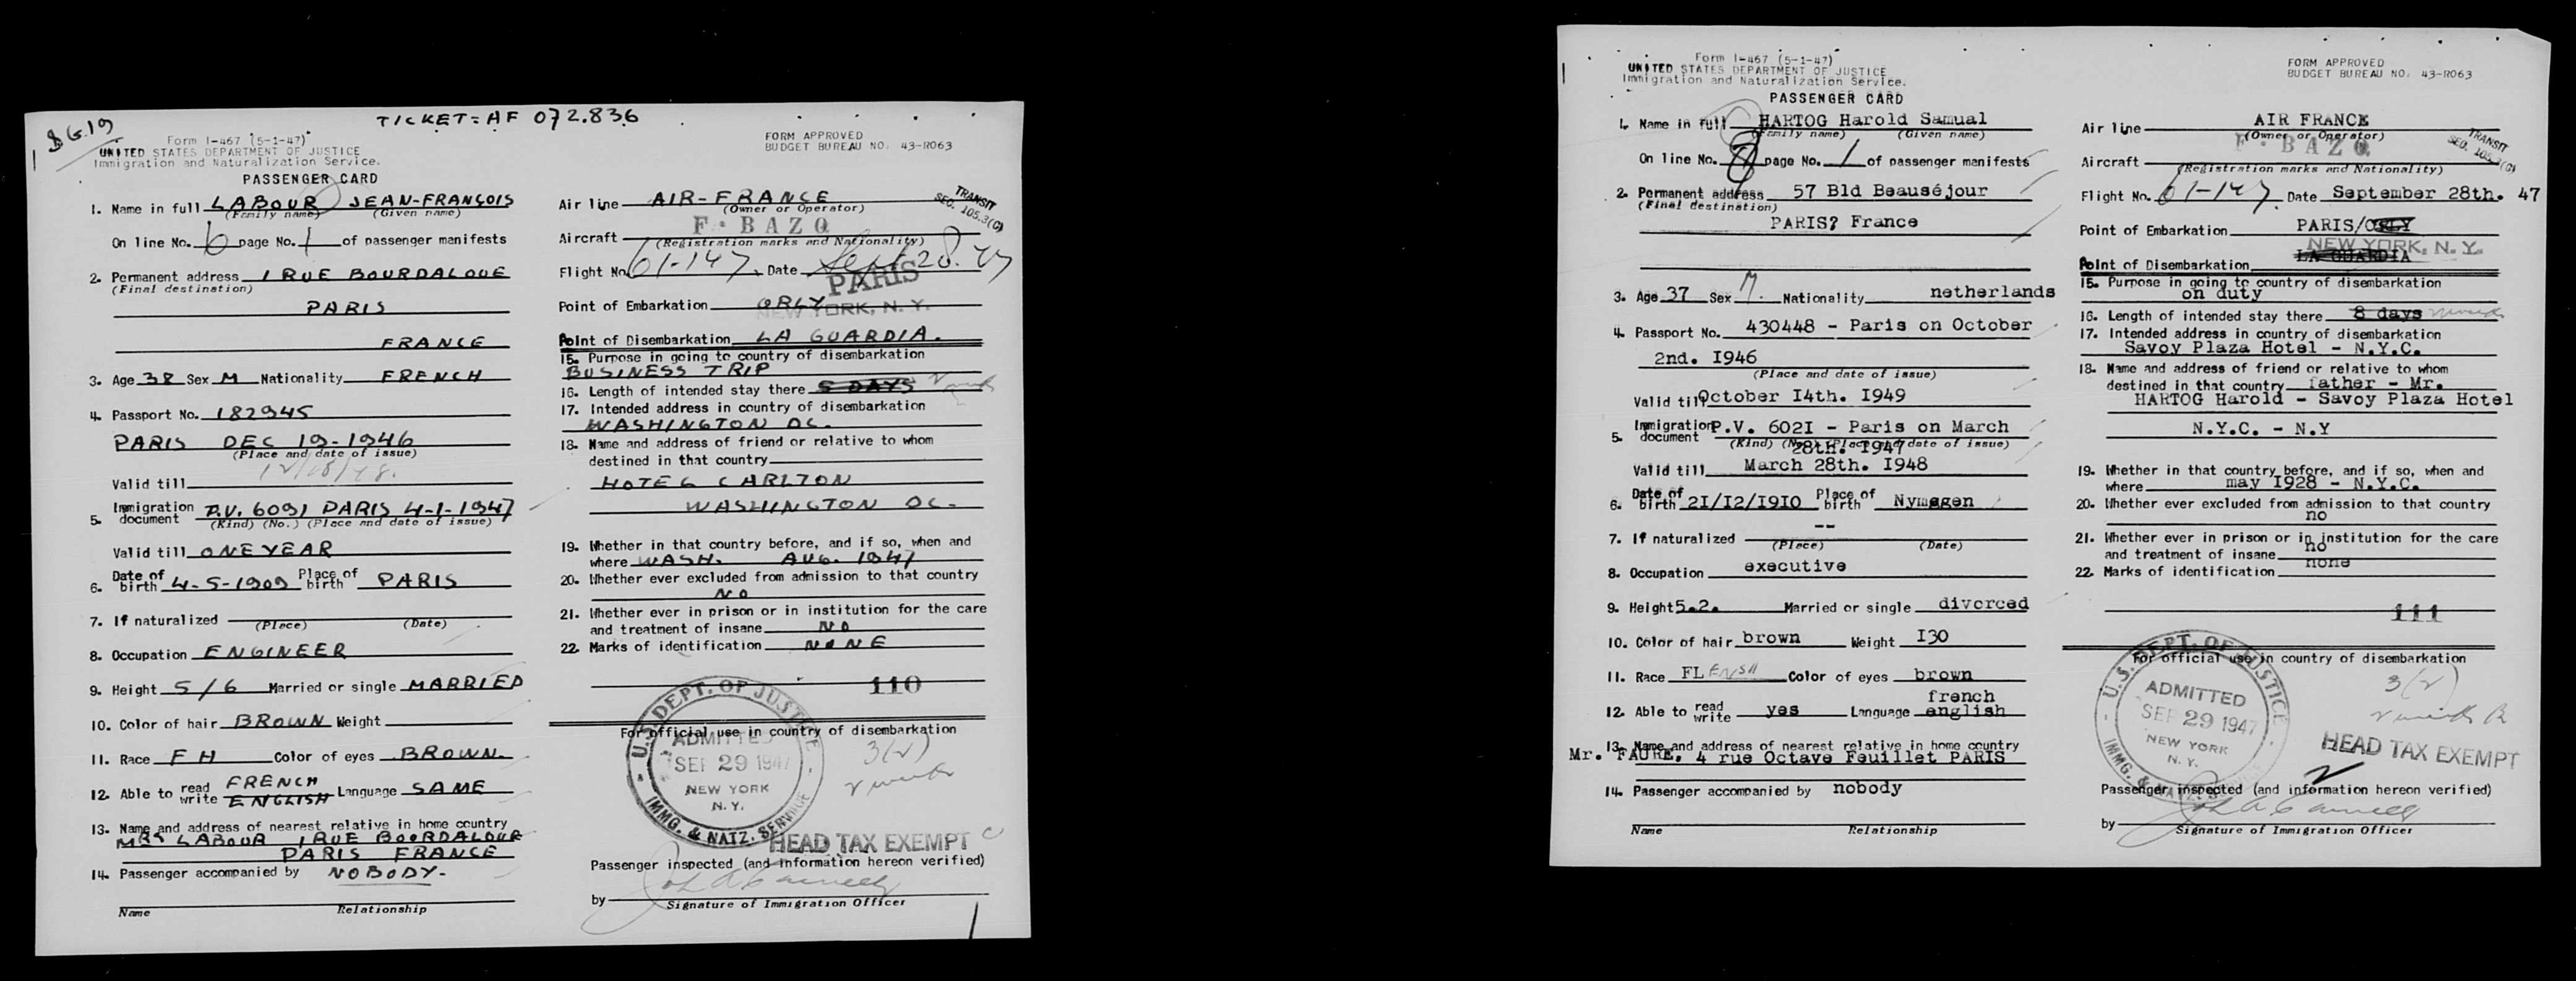 $ 6.19
TICKET = AF 072.836
Form I-467 (5-1-47)
UNITED STATES DEPARTMENT OF JUSTICE
Immigration and Naturalization Service.
FORM APPROVED
BUDGET BUREAU NO. 43-R063
PASSENGER CARD
1. Name in full LABOUR JEAN-FRANÇOIS
(Family name) (Given name)
On line No. 6 page No. 1 of passenger manifests
2. Permanent address 1 RUE BOURDALOUE
(Final destination)
PARIS
FRANCE
3. Age 38 Sex M Nationality FRENCH
4. Passport No. 182945
PARIS DEC 19-1946
(Place and date of issue)
12/18/48.
Valid till
5. Immigration document P.V. 6091 PARIS 4-1-1947
(Kind) (No.) (Place and date of issue)
Valid till ONE YEAR
6. Date of birth 4-5-1909 Place of birth PARIS
7. If naturalized
(Place) (Date)
8. Occupation ENGINEER
9. Height 5/6 Married or single MARRIED
10. Color of hair BROWN Weight
11. Race FH Color of eyes BROWN.
12. Able to read write FRENCH ENGLISH Language SAME
13. Name and address of nearest relative in home country
MRS LABOUR 1 RUE BOORDALOUE
PARIS FRANCE
14. Passenger accompanied by NOBODY-
Name Relationship
Air line AIR-FRANCE
(Owner or Operator)
TRANSIT
SEC. 105.3(C)
Aircraft F-BAZO
(Registration marks and Nationality)
Flight No. 61-147 Date Sept 28. 47
PARIS
Point of Embarkation ORLY
NEW YORK, N. Y.
Point of Disembarkation LA GUARDIA.
15. Purpose in going to country of disembarkation
BUSINESS TRIP
16. Length of intended stay there 5 DAYS
17. Intended address in country of disembarkation
WASHINGTON DC.
18. Name and address of friend or relative to whom
destined in that country
HOTEL CARLTON
WASHINGTON DC-
19. Whether in that country before, and if so, when and
where WASH. AUG. 1947
20. Whether ever excluded from admission to that country
NO
21. Whether ever in prison or in institution for the care
and treatment of insane NO
22. Marks of identification NONE
110
For official use in country of disembarkation
U.S. DEPT. OF JUSTICE
ADMITTED
SEP 29 1947
NEW YORK
N. Y.
IMMG. & NATZ. SERVICE
3(2)
HEAD TAX EXEMPT
Passenger inspected (and information hereon verified)
by
Signature of Immigration Officer
Form I-467 (5-1-47)
UNITED STATES DEPARTMENT OF JUSTICE
Immigration and Naturalization Service.
FORM APPROVED
BUDGET BUREAU NO. 43-R063
PASSENGER CARD
1. Name in full HARTOG Harold Samual
(Family name) (Given name)
On line No. 8 page No. 1 of passenger manifests
2. Permanent address 57 Bld Beauséjour
(Final destination)
PARIS? France
3. Age 37 Sex M. Nationality netherlands
4. Passport No. 430448 - Paris on October
2nd. I946
(Place and date of issue)
Valid till October I4th. I949
5. Immigration document P.V. 602I - Paris on March
(Kind) (No.) (Place and date of issue)
28th. I947
Valid till March 28th. I948
6. Date of birth 2I/I2/I9I0 Place of birth Nymegen
--
7. If naturalized
(Place) (Date)
8. Occupation executive
9. Height 5.2. Married or single divorced
10. Color of hair brown Weight I30
11. Race FLENSH Color of eyes brown
12. Able to read write yes Language french english
13. Name and address of nearest relative in home country
Mr. FAURE, 4 rue Octave Feuillet PARIS
14. Passenger accompanied by nobody
Name Relationship
Air line AIR FRANCE
(Owner or Operator)
TRANSIT
SEC. 105.3(C)
Aircraft F-BAZO
(Registration marks and Nationality)
Flight No. 61-147. Date September 28th. 47
Point of Embarkation PARIS/ORLY
NEW YORK, N. Y.
Point of Disembarkation LA GUARDIA
15. Purpose in going to country of disembarkation
on duty
16. Length of intended stay there 8 days
17. Intended address in country of disembarkation
Savoy Plaza Hotel - N.Y.C.
18. Name and address of friend or relative to whom
destined in that country father - Mr.
HARTOG Harold - Savoy Plaza Hotel
N.Y.C. - N.Y
19. Whether in that country before, and if so, when and
where may I928 - N.Y.C.
20. Whether ever excluded from admission to that country
no
21. Whether ever in prison or in institution for the care
and treatment of insane no
22. Marks of identification none
111
For official use in country of disembarkation
U.S. DEPT. OF JUSTICE
ADMITTED
SEP 29 1947
NEW YORK
N. Y.
IMMG. & NATZ. SERVICE
3(2)
HEAD TAX EXEMPT
Passenger inspected (and information hereon verified)
by
Signature of Immigration Officer